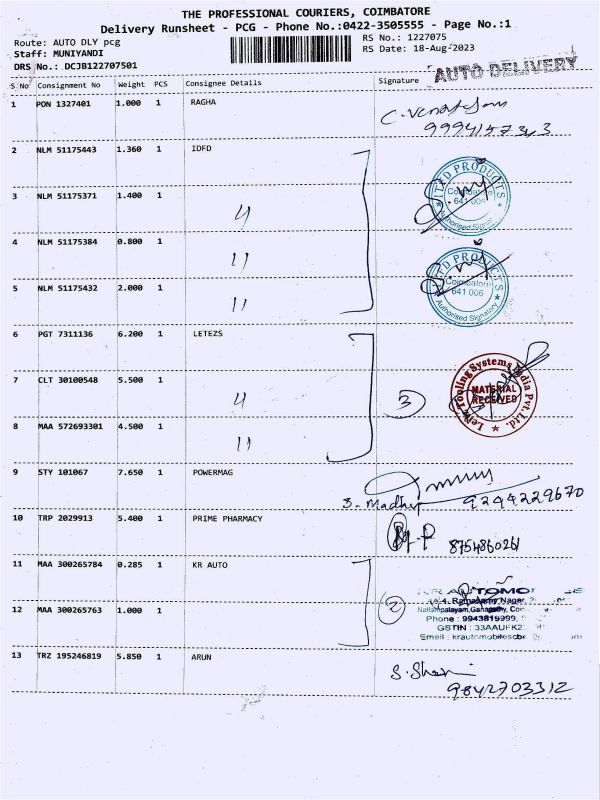 THE PROFESSIONAL COURIERS, COIMBATORE
Delivery Runsheet - PCG - Phone No.:0422-3505555 - Page No.:1
Route: AUTO DLY pcg RS No.: 1227075
Staff: MUNIYANDI RS Date: 18-Aug-2023
DRS No.: DCJB122707501 AUTO DELIVERY
S No Consignment No Weight PCS Consignee Details Signature
1 PON 1327401 1.000 1 RAGHA
2 NLM 51175443 1.360 1 IDFD
3 NLM 51175371 1.400 1 "
4 NLM 51175384 0.800 1 "
5 NLM 51175432 2.000 1 "
ITFD PRODUCTS
Coimbatore
641 006
Authorised Signatory
ITFD PRODUCTS
Coimbatore
641 006
Authorised Signatory
6 PGT 7311136 6.200 1 LETEZS
7 CLT 30100548 5.500 1 "
8 MAA 572693301 4.500 1 "
3
Tooling Systems India Pvt. Ltd.
MATERIAL
RECEIVED
9 STY 101067 7.650 1 POWERMAG
S. Madhu 9244229670
10 TRP 2029913 5.400 1 PRIME PHARMACY
8754860261
11 MAA 300265784 0.285 1 KR AUTO
12 MAA 300265763 1.000 1
2
Nagar,
Nallampalayam, Ganapathy,
Phone : 9943819999,
GSTIN : 33AAUFK2
Email : krautomobilescbe
13 TRZ 195246819 5.850 1 ARUN
9842703312